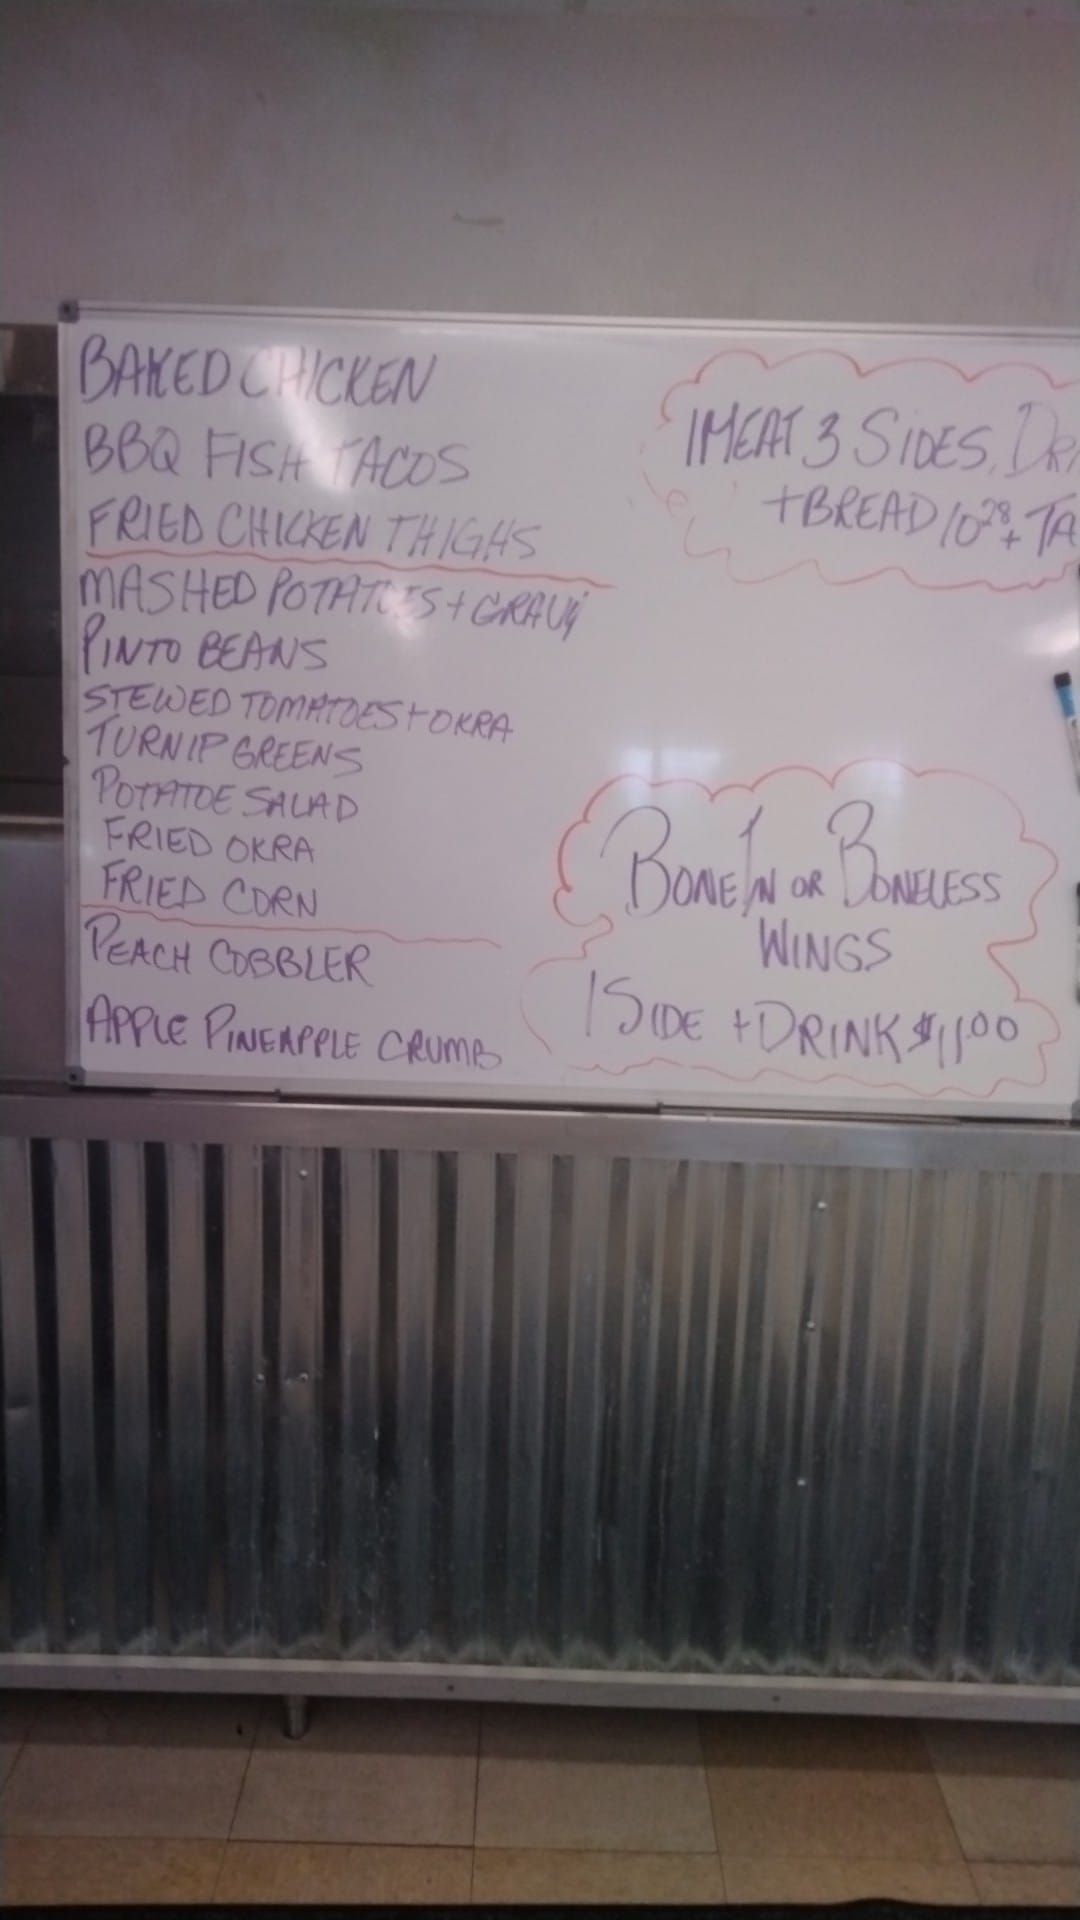 BAKED CHICKEN
BBQ FISH TACOS
FRIED CHICKEN THIGHS
MASHED POTATOES + GRAVY
PINTO BEANS
STEWED TOMATOES + OKRA
TURNIP GREENS
POTATOE SALAD
FRIED OKRA
FRIED CORN
PEACH COBBLER
APPLE PINEAPPLE CRUMB
1 MEAT 3 SIDES, DRI
+ BREAD 10 28 + TA
BONE IN OR BONELESS
WINGS
1 SIDE + DRINK $11.00